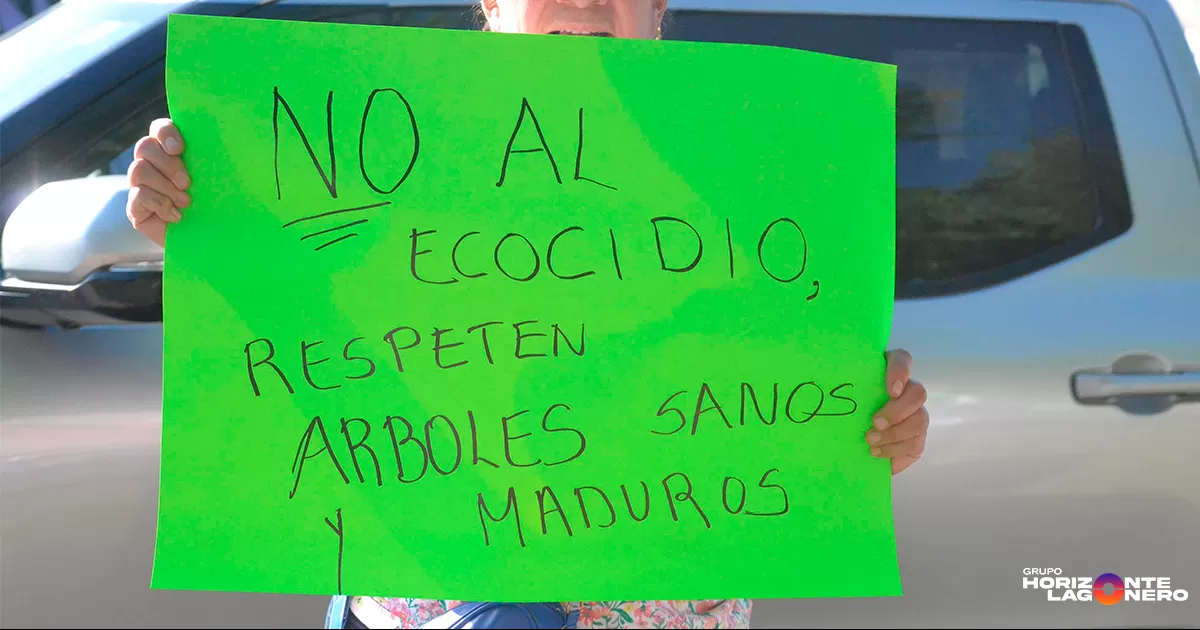 NO AL
ECOCIDIO,
RESPETEN
ARBOLES SANOS
Y MADUROS
GRUPO
HORIZONTE
LAGONERO